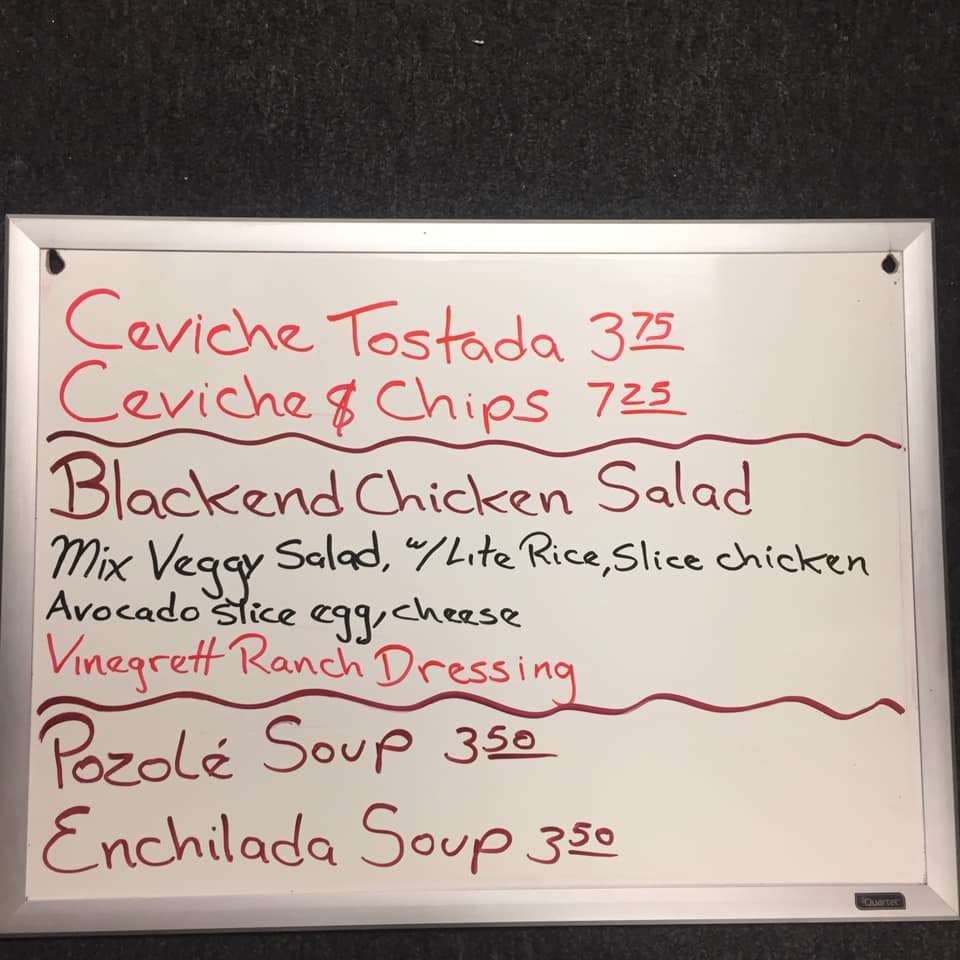 Ceviche Tostada 3 75
Ceviche & Chips 7 25
Blackend Chicken Salad
Mix Veggy Salad, w/Lite Rice, Slice chicken
Avocado slice egg, cheese
Vinegrett Ranch Dressing
Pozolé Soup 3 50
Enchilada Soup 3 50
Quartet